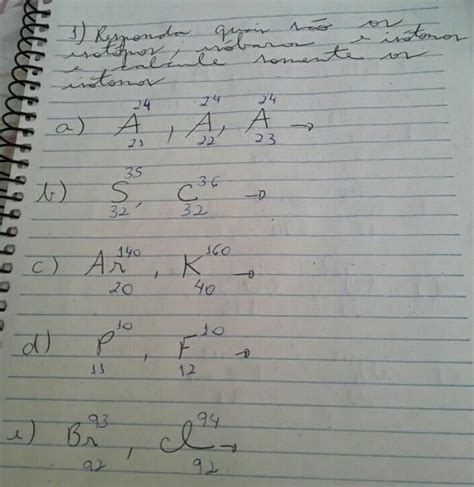 1) Responda quais são os
isótopos, isóbaros e isótonos
e calcule somente os
isótonos
24 24 24
a) A , A, A →
21 22 23
35 36
b) S, C →
32 32
140 160
c) Ar , K →
20 40
10 10
d) P , F →
11 12
93 94
e) Br , Cl →
92 92